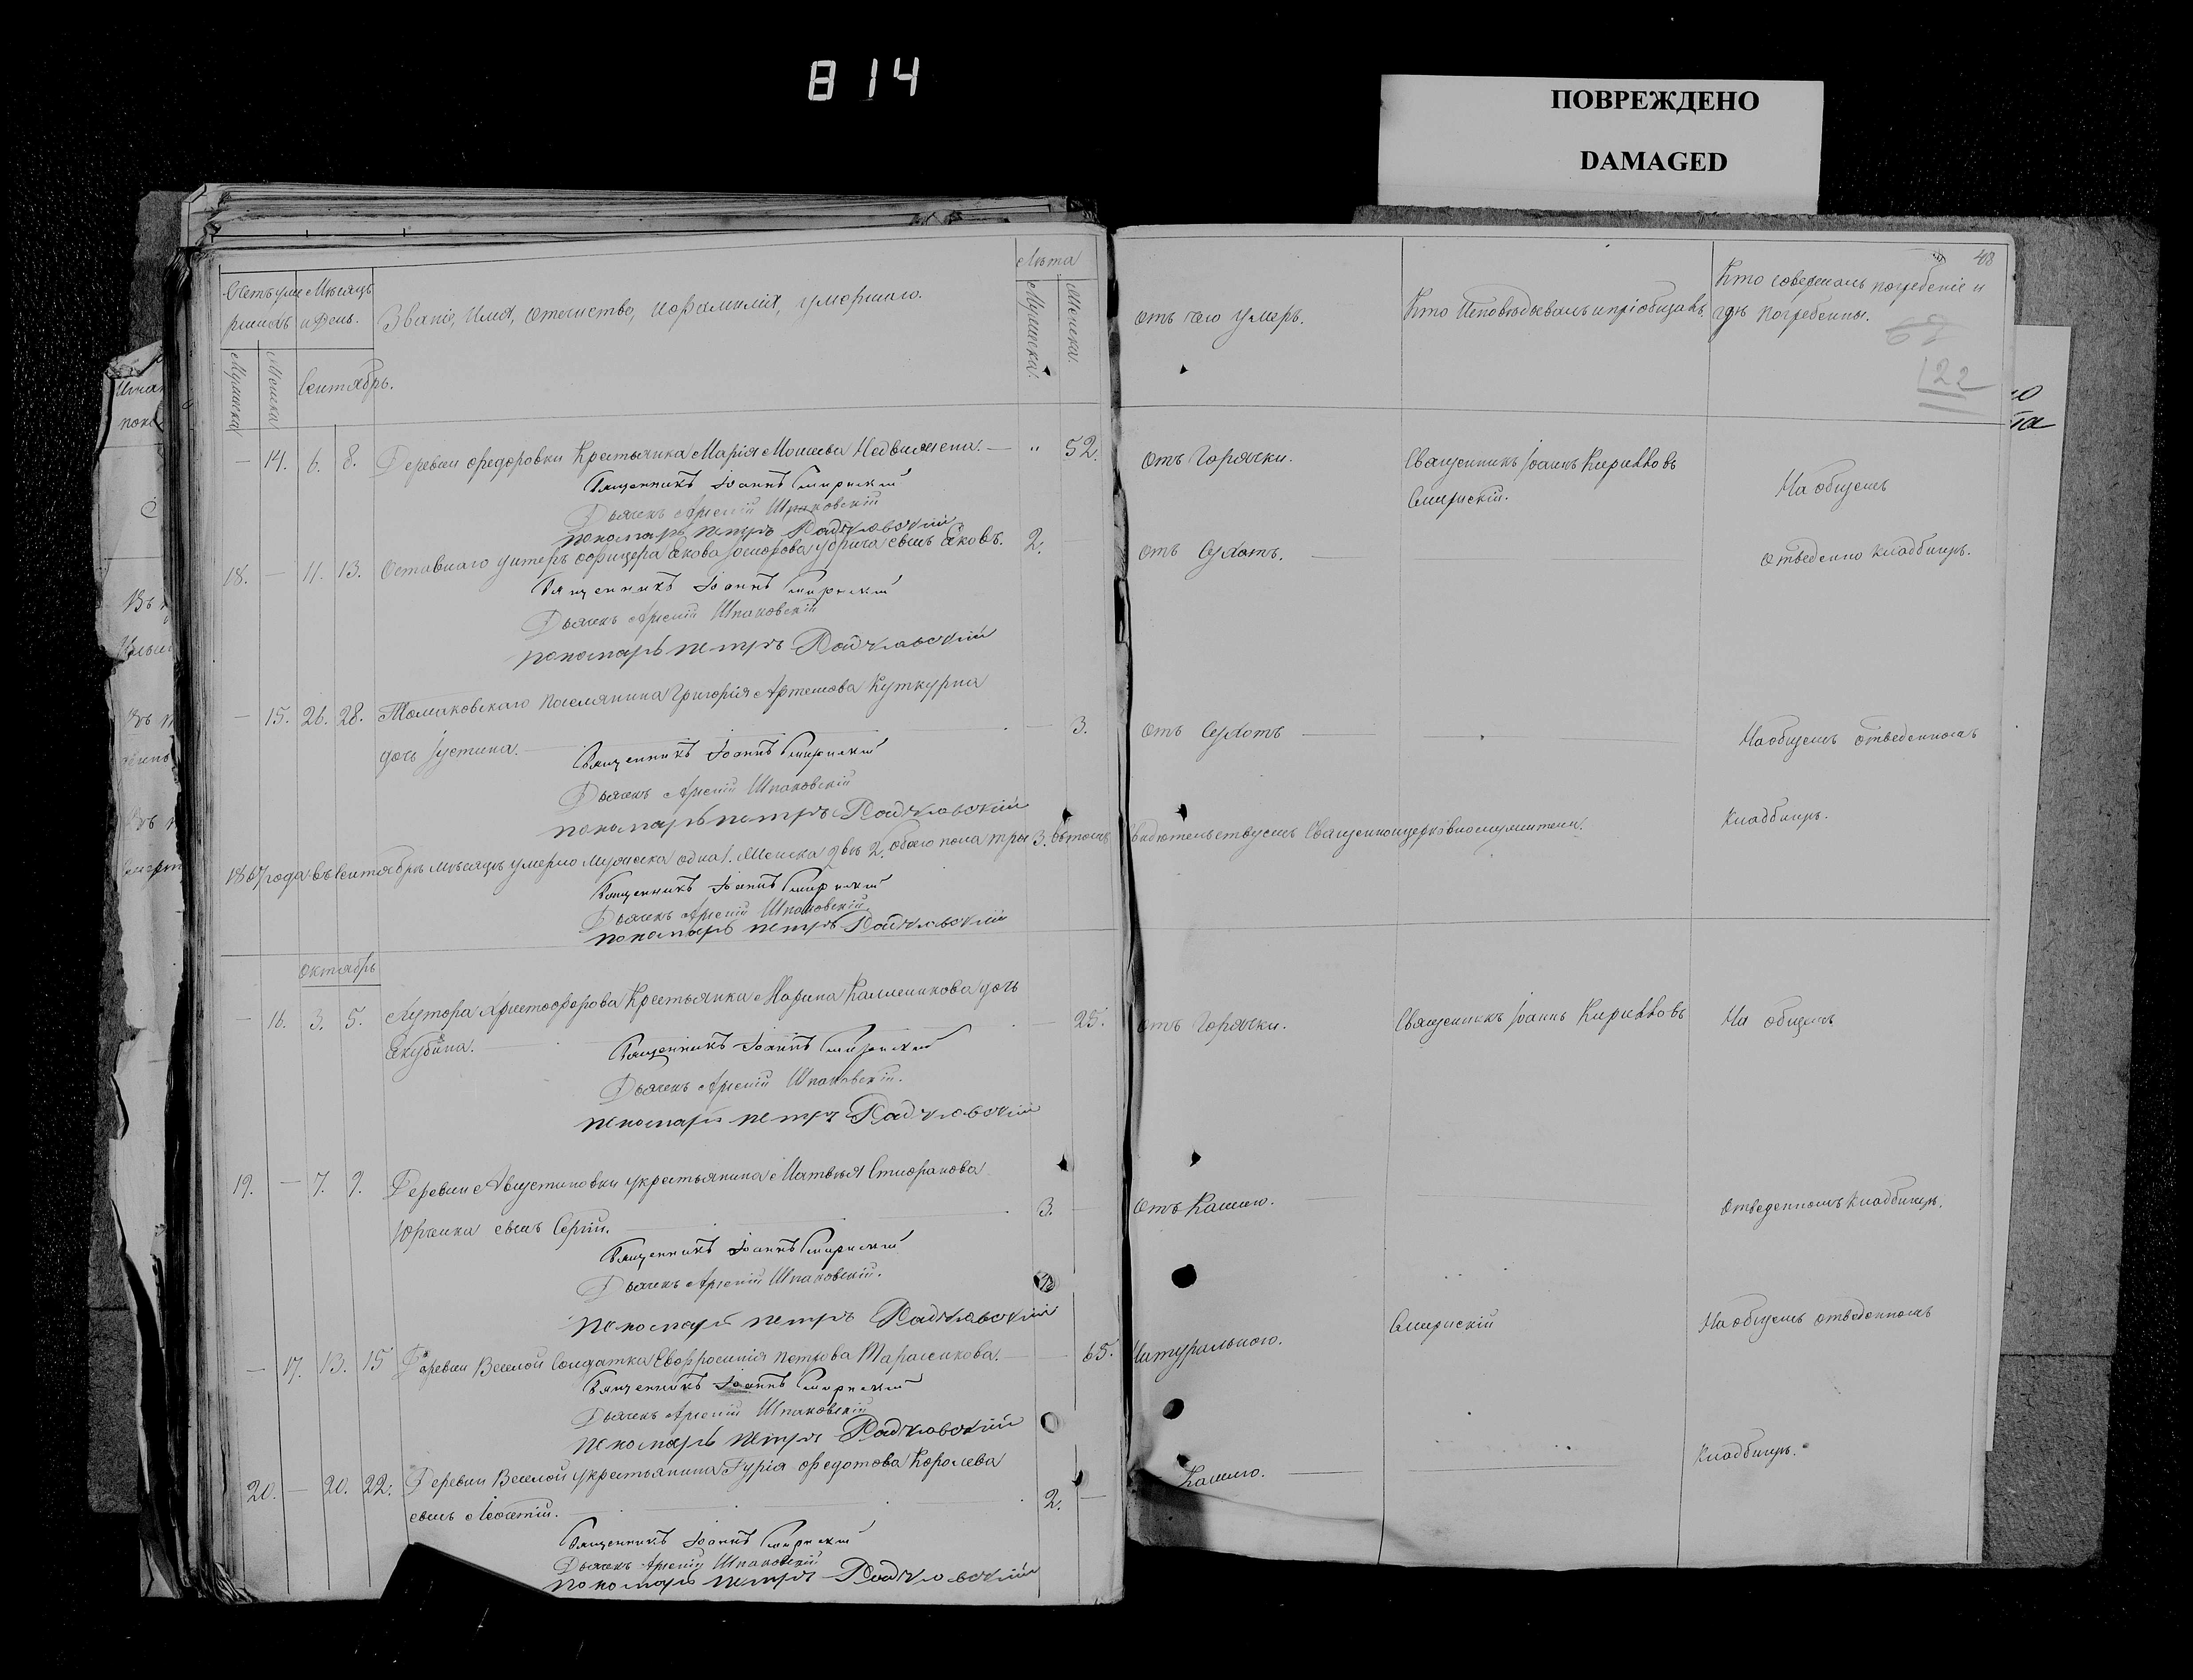 814
ПОВРЕЖДЕНО
DAMAGED
Счетъ уме
ршихъ
Мѣсяцъ
и День.
Званіе, Имя, Отечество, и Фамилія, умершаго.
Лѣта
Мужеска.
Женска.
Мужеска
Женска
Сентябрь.
отъ чего умеръ.
Кто Исповѣдывалъ и пріобщалъ.
Кто совершалъ погребеніе и
гдѣ погребенны.
48
68
122
— 14. 6. 8. Деревни Федоровки Крестьянка Марія Моисеева — " 52.
отъ Горячки.
Священникъ Іоаннъ Кирилловъ
Смирнскій.
На общемъ
Священникъ Іоаннъ Смирнскій
Дьячекъ Арсеній Шпаковскій
пономарь петръ Радзіовскій
18. — 11. 13. Отставнаго унтеръ офицера Якова сынъ Яковъ. 2. —
отъ Сухотъ.
отведенно кладбищѣ.
Священникъ Іоаннъ Смирнскій
Дьячекъ Арсеній Шпаковскій
пономарь петръ Радзіовскій
— 15. 26. 28. Томаковскаго поселянина Григорія Артемова
дочь Іустина. — 3.
отъ Сухотъ
На общемъ отведенномъ
Священникъ Іоаннъ Смирнскій
Дьячекъ Арсеній Шпаковскій
пономарь петръ Радзіовскій
Кладбищѣ.
1867 года въ Сентябрѣ мѣсяцѣ умерло мужеска одна 1. Женска двѣ 2. обоего пола три 3. въ томъ свидѣтельствуемъ Священноцерковнослужители.
Священникъ Іоаннъ Смирнскій
Дьячекъ Арсеній Шпаковскій
пономарь петръ Радзіовскій
Октябрь
— 16. 3. 5. Хутора Христофорова Крестьянка Марина дочь
— 25.
отъ Горячки.
Священникъ Іоаннъ Кирилловъ
На общемъ
Священникъ Іоаннъ Смирнскій
Дьячекъ Арсеній Шпаковскій.
пономарь петръ Радзіовскій
19. — 7. 9. Деревни Августиновки у крестьянина Матвѣя Стефанова
сынъ Сергій. 3. —
отъ Кашлю.
отведенномъ кладбищѣ.
Священникъ Іоаннъ Смирнскій
Дьячекъ Арсеній Шпаковскій.
пономарь петръ Радзіовскій
Смирнскій
На общемъ отведенномъ
— 17. 13. 15 Деревни Веселой Солдатка Евфросинія Петрова Тарасенкова. — 65.
Натурального.
Священникъ Іоаннъ Смирнскій
Дьячекъ Арсеній Шпаковскій
пономарь петръ Радзіовскій
20. — 20. 22. Деревни Веселой у крестьянина Гурія Федотова Королева
сынъ Леонтій. 2. —
Кашлю.
Кладбищѣ.
Священникъ Іоаннъ Смирнскій
Дьячекъ Арсеній Шпаковскій
пономарь петръ Радзіовскій